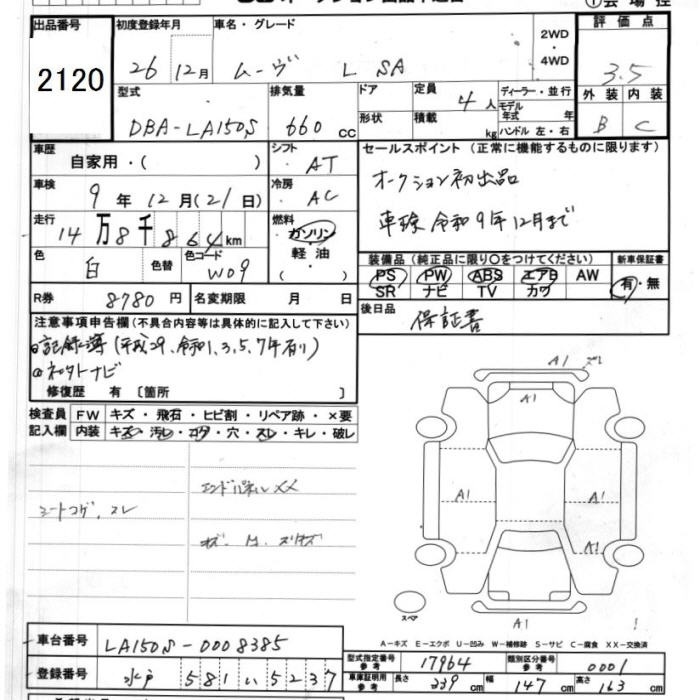 出品番号 初度登録年月 車名・グレード 2WD・4WD 評価点
2120 26 12月 ムーヴ L SA 3.5
型式 排気量 ドア 定員 ディーラー・並行 外装 内装
DBA-LA150S 660 cc 形状 積載 4人 kg モデル年式 年 ハンドル 左・右 B C
車歴 自家用・( ) シフト AT セールスポイント(正常に機能するものに限ります)
車検 9年12月(21日) 冷房 AC オークション初出品
走行 14万8千864km 燃料 ガソリン・軽油( ) 車検令和9年12月まで
色 白 色替 色コード W09
装備品(純正品に限り○をつけてください) 新車保証書
PS PW ABS エアB AW 有・無
SR ナビ TV カワ
R券 8780円 名変期限 月 日 後日品 保証書
注意事項申告欄(不具合内容等は具体的に記入して下さい)
記録簿(平成29、令和1、3、5、7年有り)
ナビ
修復歴 有〔箇所 〕
検査員記入欄 FW キズ・飛石・ヒビ割・リペア跡・×要
内装 キズ・汚レ・コゲ・穴・スレ・キレ・破レ
シートコゲ、スレ
A1
A1
A1 A1
A1
A1
スペア
A-キズ E-エクボ U-凹み W-補修跡 S-サビ C-腐食 XX-交換済
車台番号 LA150S-0008385
型式指定番号 参考 17964 類別区分番号 参考 0001
登録番号 水戸 581 い 5237
車庫証明用 参考 長さ 339cm 幅 147cm 高さ 163cm